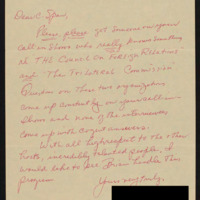 Dear C-Span,
Please please get someone on your
call in Shows who really knows something
of THE Council on Foreign Relations
and "The Trilateral Commission"
Questions on these two organizations
come up constantly on your call in
Shows and none of the interviewees
come up with cogent answers.
With all high respect to the other
hosts, incredibly talented people, I
would like to see Brian Lamb do This
program
Yours very truly,